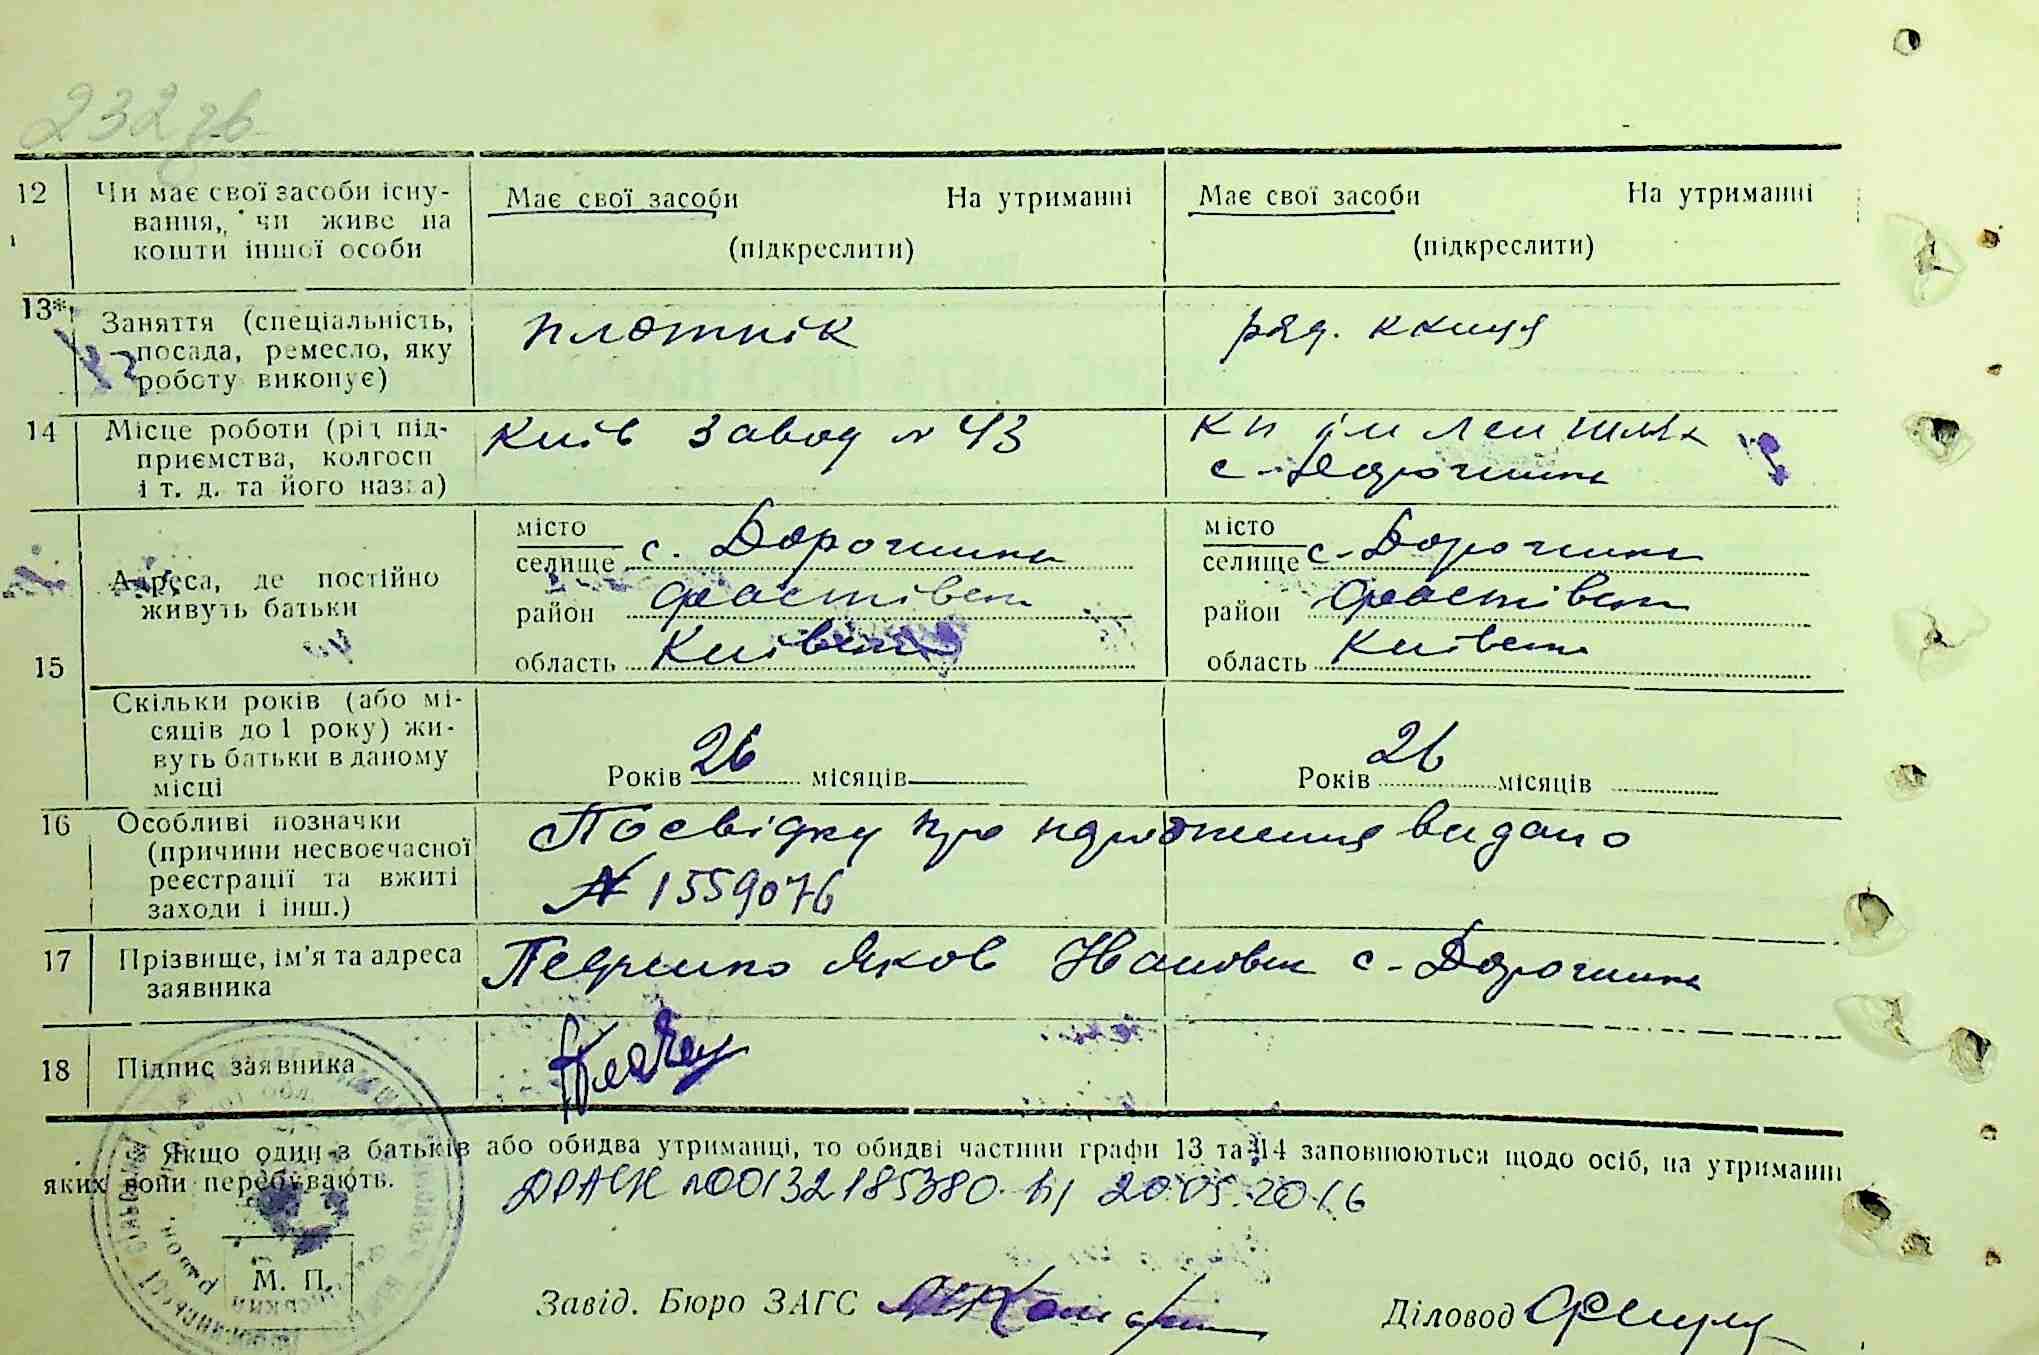 232 зв
12 Чи має свої засоби існу- Має свої засоби На утриманні Має свої засоби На утриманні
вання, чи живе на
кошти іншої особи (підкреслити) (підкреслити)
13* Заняття (спеціальність, плотнік ряд. ккиця
посада, ремесло, яку
роботу виконує)
14 Місце роботи (рід під- Київ завод № 43 Кп ім
приємства, колгосп с. Дорогинка
і т. д. та його назва)
15 Адреса, де постійно
живуть батьки
місто місто
селище с. Дорогинка селище с. Дорогинка
район Фастівськ район Фастівськ
область Київськ область Київськ
Скільки років (або мі-
сяців до 1 року) жи-
вуть батьки в даному
місці
Років 26 місяців Років 26 місяців
16 Особливі позначки Посвідку про народження видано
(причини несвоєчасної
реєстрації та вжиті № 1559076
заходи і інш.)
17 Прізвище, ім'я та адреса Яков Іванович с. Дорогинка
заявника
18 Підпис заявника
Якщо один з батьків або обидва утриманці, то обидві частини графи 13 та 14 заповнюються щодо осіб, на утриманні
яких вони перебувають.
ДРАСЦ №00132185380 від 20.05.2016
М. П.
Завід. Бюро ЗАГС Діловод